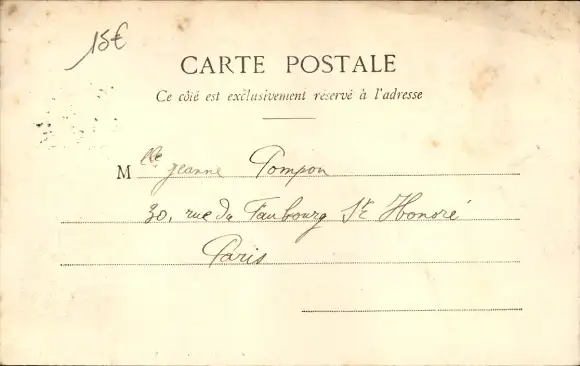 15€
CARTE POSTALE
Ce côté est exclusivement réservé à l'adresse
Mlle Jeanne Pompon
30, rue du Faubourg St Honoré
Paris